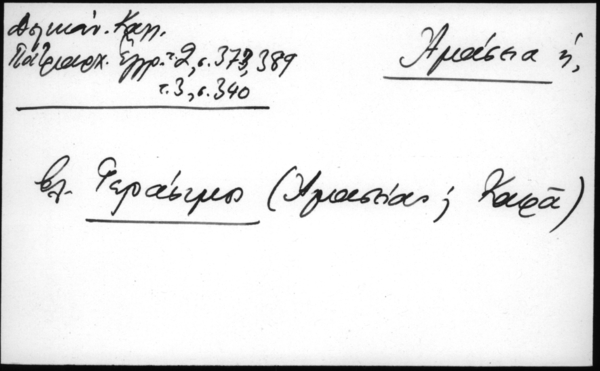 Δελικάν. Καλ.
Πατριαρχ. Ἔγγρ. τ. 2, σ. 373, 389
τ. 3, σ. 340
Ἀμάσεια ἡ,
βλ. Γεράσιμος (Ἀμασείας; Καρᾶ)